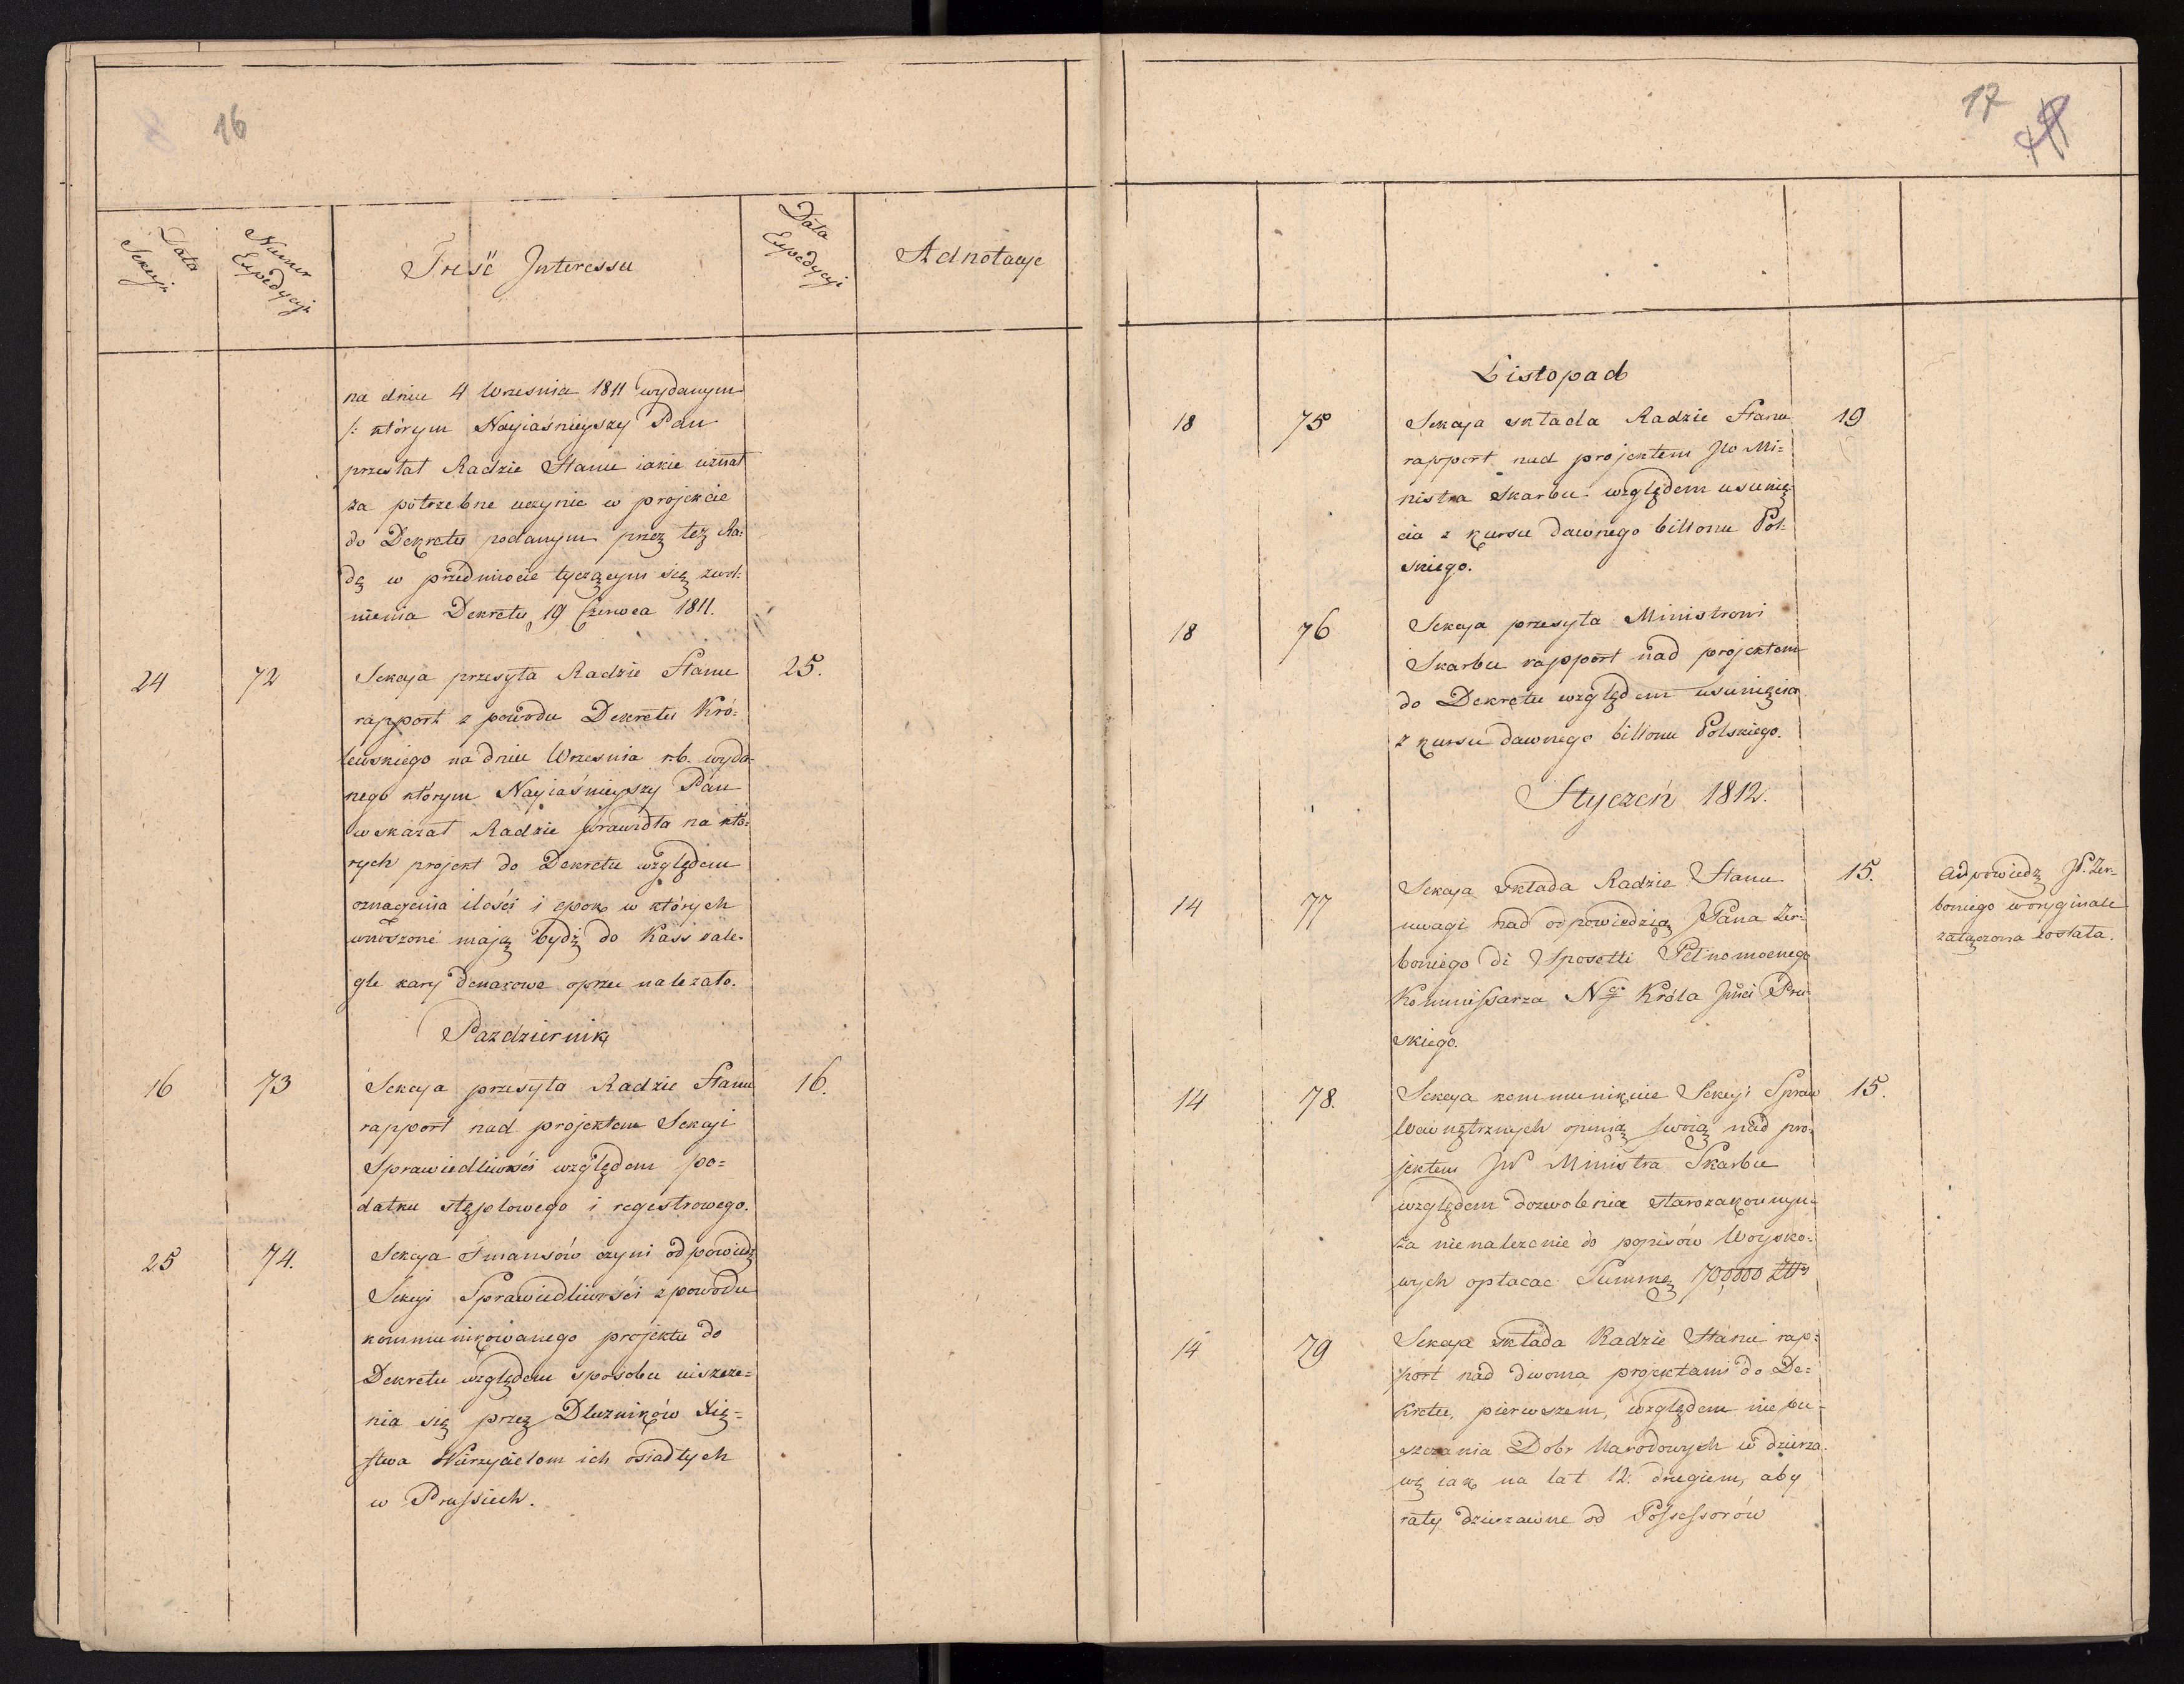 16
Data Sekcyi
Numer Expedycyi
Treść Interessu
Data Expedycyi
Adnotacye
na dniu 4 Wrzesnia 1811 wydanym
/: którym Nayiaśnieyszy Pan
przesłał Radzie Stanu iakie uznał
za potrzebne uczynic w projekcie
do Dekretu podanym przez tęż Ra:
dę w przedmiocie tyczącym się zwol:
nienia Dekretu 19 Czerwca 1811.
24 72 Sekcya przesyła Radzie Stanu 25.
rapport z powodu Dekretu Kró:
lewskiego na dniu Wrzesnia r.b. wyda-
nego którym Nayiaśnieyszy Pan
wskazał Radzie prawidła na któ:
rych projekt do Dekretu względem
oznaczenia ilości i epok w których
wnoszone mają bydź do Kass zale-
głe kary
Pazdziernik
16 73 Sekcya przesyła Radzie Stanu 16.
rapport nad projektem Sekcyi
Sprawiedliwości względem po=
datku stęplowego i regestrowego.
25 74. Sekcya Finansów czyni odpowiedź
Sekcyi Sprawiedliwości z powodu
kommunikowanego projektu do
Dekretu względem sposobu uiszcze=
nia się przez Dłużników Xię=
stwa Wierzycielom ich osiadłych
w Prussiech.
17
Listopad
18 75 Sekcya składa Radzie Stanu 19
rapport nad projektem JW Mi=
nistra Skarbu względem usunię-
cia z kursu dawnego billonu Pol-
skiego.
18 76 Sekcya przesyła Ministrowi
Skarbu rapport nad projektem
do Dekretu względem usunięcia
z kursu dawnego billonu Polskiego.
Styczeń 1812.
14 77 Sekcya składa Radzie Stanu 15. Odpowiedź JP. Zer-
uwagi nad odpowiedzią JPana Zer- boniego w oryginale
boniego di Sposetti Pełnomocnego załączona została.
Kommissarza Ngo Króla Jmci Pru-
skiego.
14 78. Sekcya kommunikuie Sekcyi Spraw 15.
Wewnętrznych opinią swoią nad pro-
jektem JW Ministra Skarbu
względem dozwolenia starozakonnym
za nienależenie do popisów Woysko-
wych opłacac Summę 70,000 Złł
14 79 Sekcya składa Radzie Stanu rap-
port nad dwoma projektami do De-
kretu, pierwszem, względem niepu-
szczania Dobr Narodowych w dzierza-
wę iak na lat 12. drugiem, aby
raty dzierzawne od Possessorów